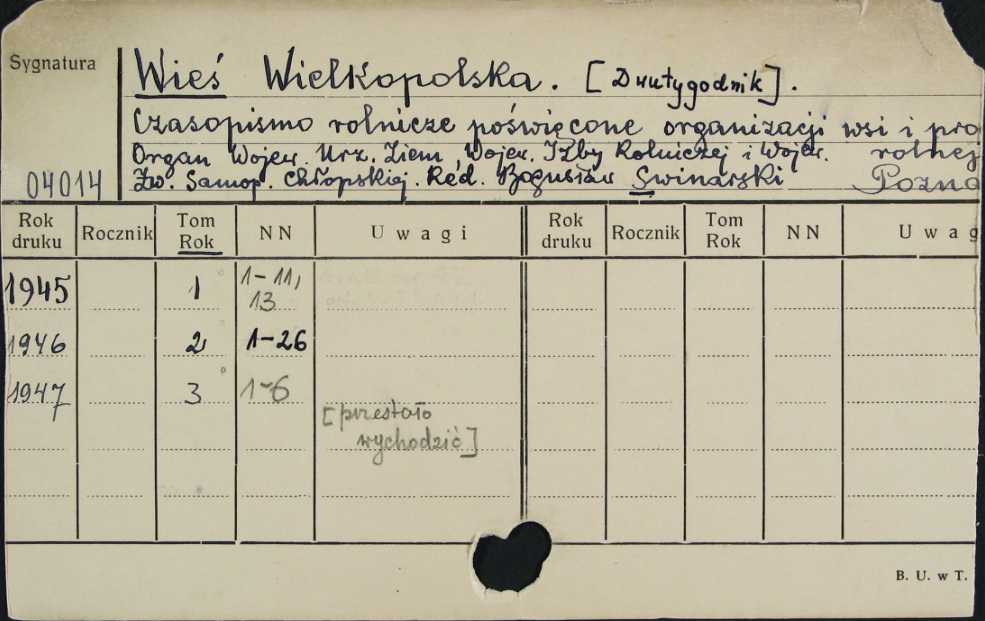 Sygnatura
Wieś Wielkopolska. [Dwutygodnik].
Czasopismo rolnicze poświęcone organizacji wsi i pro
Organ Wojew. Urz. Ziem, Wojew. Izby Rolniczej i Wojew. rolnej
04014 Zw. Samop. Chłopskiej. Red. Bogusław Swinarski Pozna
Rok druku Rocznik Tom Rok NN Uwagi Rok druku Rocznik Tom Rok NN Uwag
1945 1 1-11,
13
1946 2 1-26
1947 3 1-6
[przestało
wychodzić]
B. U. w T.